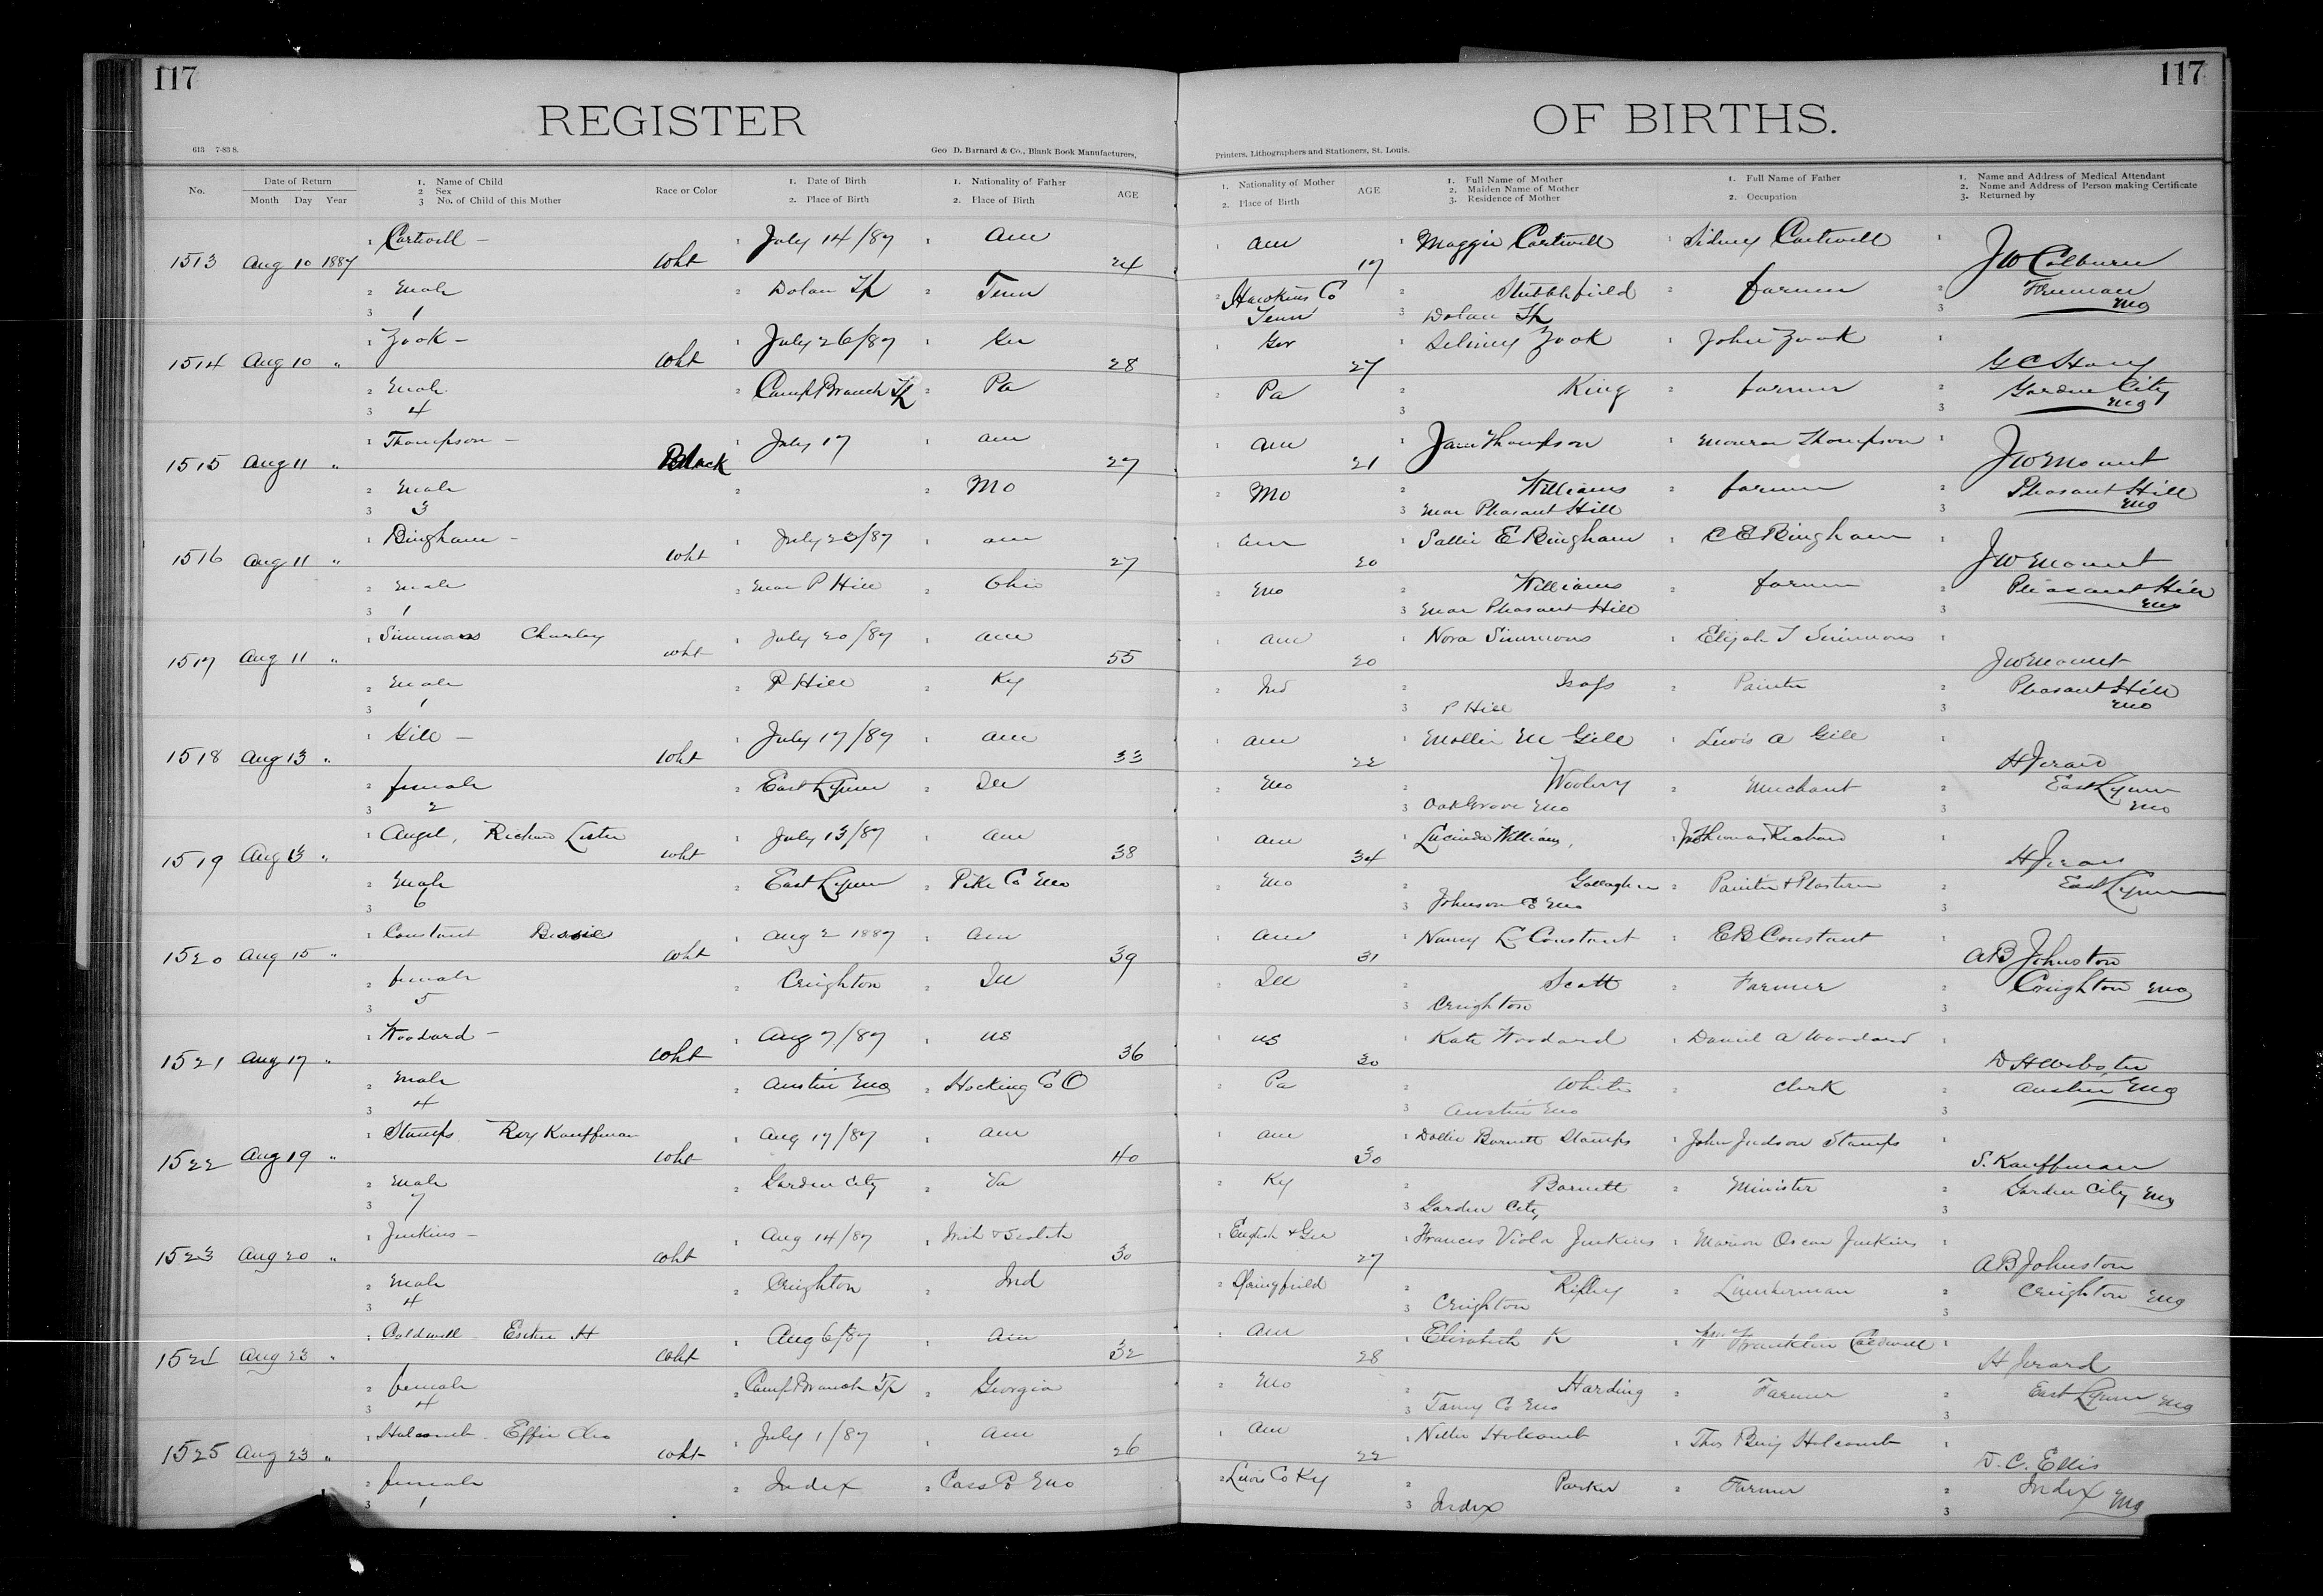 117
117
REGISTER OF BIRTHS.
613 7-83 S.
Geo D. Barnard & Co., Blank Book Manufacturers,
Printers, Lithographers and Stationers, St. Louis.
No. Date of Return Month Day Year 1. Name of Child 2 Sex 3 No. of Child of this Mother Race or Color 1. Date of Birth 2. Place of Birth 1. Nationality of Father 2. Place of Birth AGE 1. Nationality of Mother 2. Place of Birth AGE 1. Full Name of Mother 2. Maiden Name of Mother 3. Residence of Mother 1. Full Name of Father 2. Occupation 1. Name and Address of Medical Attendant 2. Name and Address of Person making Certificate 3. Returned by
1 Cartwell – 1 July 14/87 1 Am 1 Am 1 Maggie Cartwell 1 Sidney Cartwell 1
1513 Aug 10 1887 Wht 24 17 J W Colburn
2 Male 2 Dolan Tp 2 Tenn 2 Hawkins Co 2 Stubblefield 2 farmer 2 Freeman
3 1 Tenn 3 Dolan Tp 3 Mo
1 Zook – 1 July 26/87 1 Ger 1 Ger 1 Zook 1 John Zook 1
1514 Aug 10 " Wht 28 27 G C
2 Male 2 Camp Branch Tp 2 Pa 2 Pa 2 King 2 farmer 2 Garden City
3 4 3 3 Mo
1 Thompson – 1 July 17 1 Am 1 Am 1 Jane Thompson 1 Monroe Thompson 1
1515 Aug 11 " Black 27 21 J W Mount
2 Male 2 2 Mo 2 Mo 2 Williams 2 farmer 2 Pleasant Hill
3 3 3 Near Pleasant Hill 3 Mo
1 Bingham – 1 July 23/87 1 Am 1 Am 1 Sallie E Bingham 1 C E Bingham 1
1516 Aug 11 " Wht 27 20 J W Mount
2 Male 2 Near P Hill 2 Ohio 2 Mo 2 Williams 2 farmer 2 Pleasant Hill
3 1 3 Near Pleasant Hill 3 Mo
1 Simmons Charley 1 July 20/87 1 Am 1 Am 1 Nora Simmons 1 Elijah T Simmons 1
1517 Aug 11 " Wht 55 20 J W Mount
2 Male 2 P Hill 2 Ky 2 Ind 2 2 Painter 2 Pleasant Hill
3 1 3 P Hill 3 Mo
1 Gill – 1 July 17/87 1 Am 1 Am 1 Mollie M Gill 1 Lewis A Gill 1
1518 Aug 13 " Wht 33 22 H Jerard
2 female 2 East Lynne 2 Ill 2 Mo 2 Woolery 2 Merchant 2 East Lynne
3 2 3 Oak Grove Mo 3 Mo
1 Angel, Richard Lester 1 July 13/87 1 Am 1 Am 1 Lucinda William, 1 Thomas Richard 1
1519 Aug 13 " Wht 38 34 H Jerard
2 Male 2 East Lynne 2 Pike Co Mo 2 Mo 2 Gallagher 2 Painter & Plasterer 2 East Lynne
3 6 3 Johnson Co Mo 3
1 Constant Bessie 1 Aug 2 1887 1 Am 1 Am 1 Nancy L Constant 1 E B Constant 1
1520 Aug 15 " Wht 39 31 A B Johnston
2 female 2 Creighton 2 Ill 2 Ill 2 Scott 2 Farmer 2 Creighton Mo
3 5 3 Creighton 3
1 Woodard – 1 Aug 7/87 1 US 1 US 1 Kate Woodard 1 Daniel A Woodard 1
1521 Aug 17 " Wht 36 30 D H Webster
2 Male 2 Austin Mo 2 Hocking Co O 2 Pa 2 White 2 Clerk 2 Austin Mo
3 4 3 Austin Mo 3
1 Stamps Roy Kauffman 1 Aug 17/87 1 Am 1 Am 1 Dollie Barnett Stamps 1 John Judson Stamps 1
1522 Aug 19 " Wht 40 30 S. Kauffman
2 Male 2 Garden City 2 Va 2 Ky 2 Barnett 2 Minister 2 Garden City Mo
3 7 3 Garden City 3
1 Jenkins – 1 Aug 14/87 1 Irish & Scotch 1 English & Ger 1 Frances Viola Jenkins 1 Marion Oscar Jenkins 1
1523 Aug 20 " Wht 30 27 A B Johnston
2 Male 2 Creighton 2 Ind 2 Springfield 2 Ripley 2 Lumberman 2 Creighton Mo
3 4 3 Creighton 3
1 Caldwell – H 1 Aug 6/87 1 Am 1 Am 1 Elizabeth K 1 Wm Franklin Caldwell 1
1524 Aug 23 " Wht 32 28 H Jerard
2 female 2 Camp Branch Tp 2 Georgia 2 Mo 2 Harding 2 Farmer 2 East Lynne Mo
3 4 3 Taney Co Mo 3
1 Holcomb Effie Cleo 1 July 1/87 1 Am 1 Am 1 Nellie Holcomb 1 Thos Benj Holcomb 1
1525 Aug 23 " Wht 26 22 D. C. Ellis
2 female 2 Index 2 Cass Co Mo 2 Lewis Co Ky 2 Parker 2 Farmer 2 Index Mo
3 1 3 Index 3